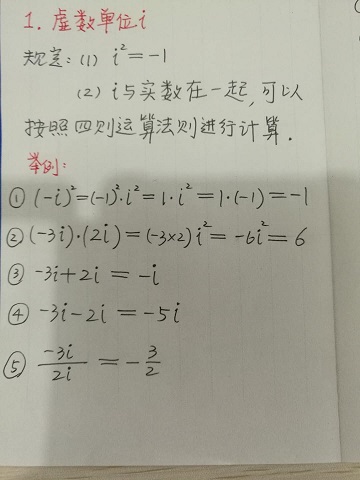 1. 虚数单位i
规定:(1) i²=-1
(2) i与实数在一起,可以
按照四则运算法则进行计算.
举例:
① (-i)²=(-1)²·i²=1·i²=1·(-1)=-1
② (-3i)·(2i)=(-3×2)i²=-6i²=6
③ -3i+2i=-i
④ -3i-2i=-5i
⑤ -3i/2i=-3/2